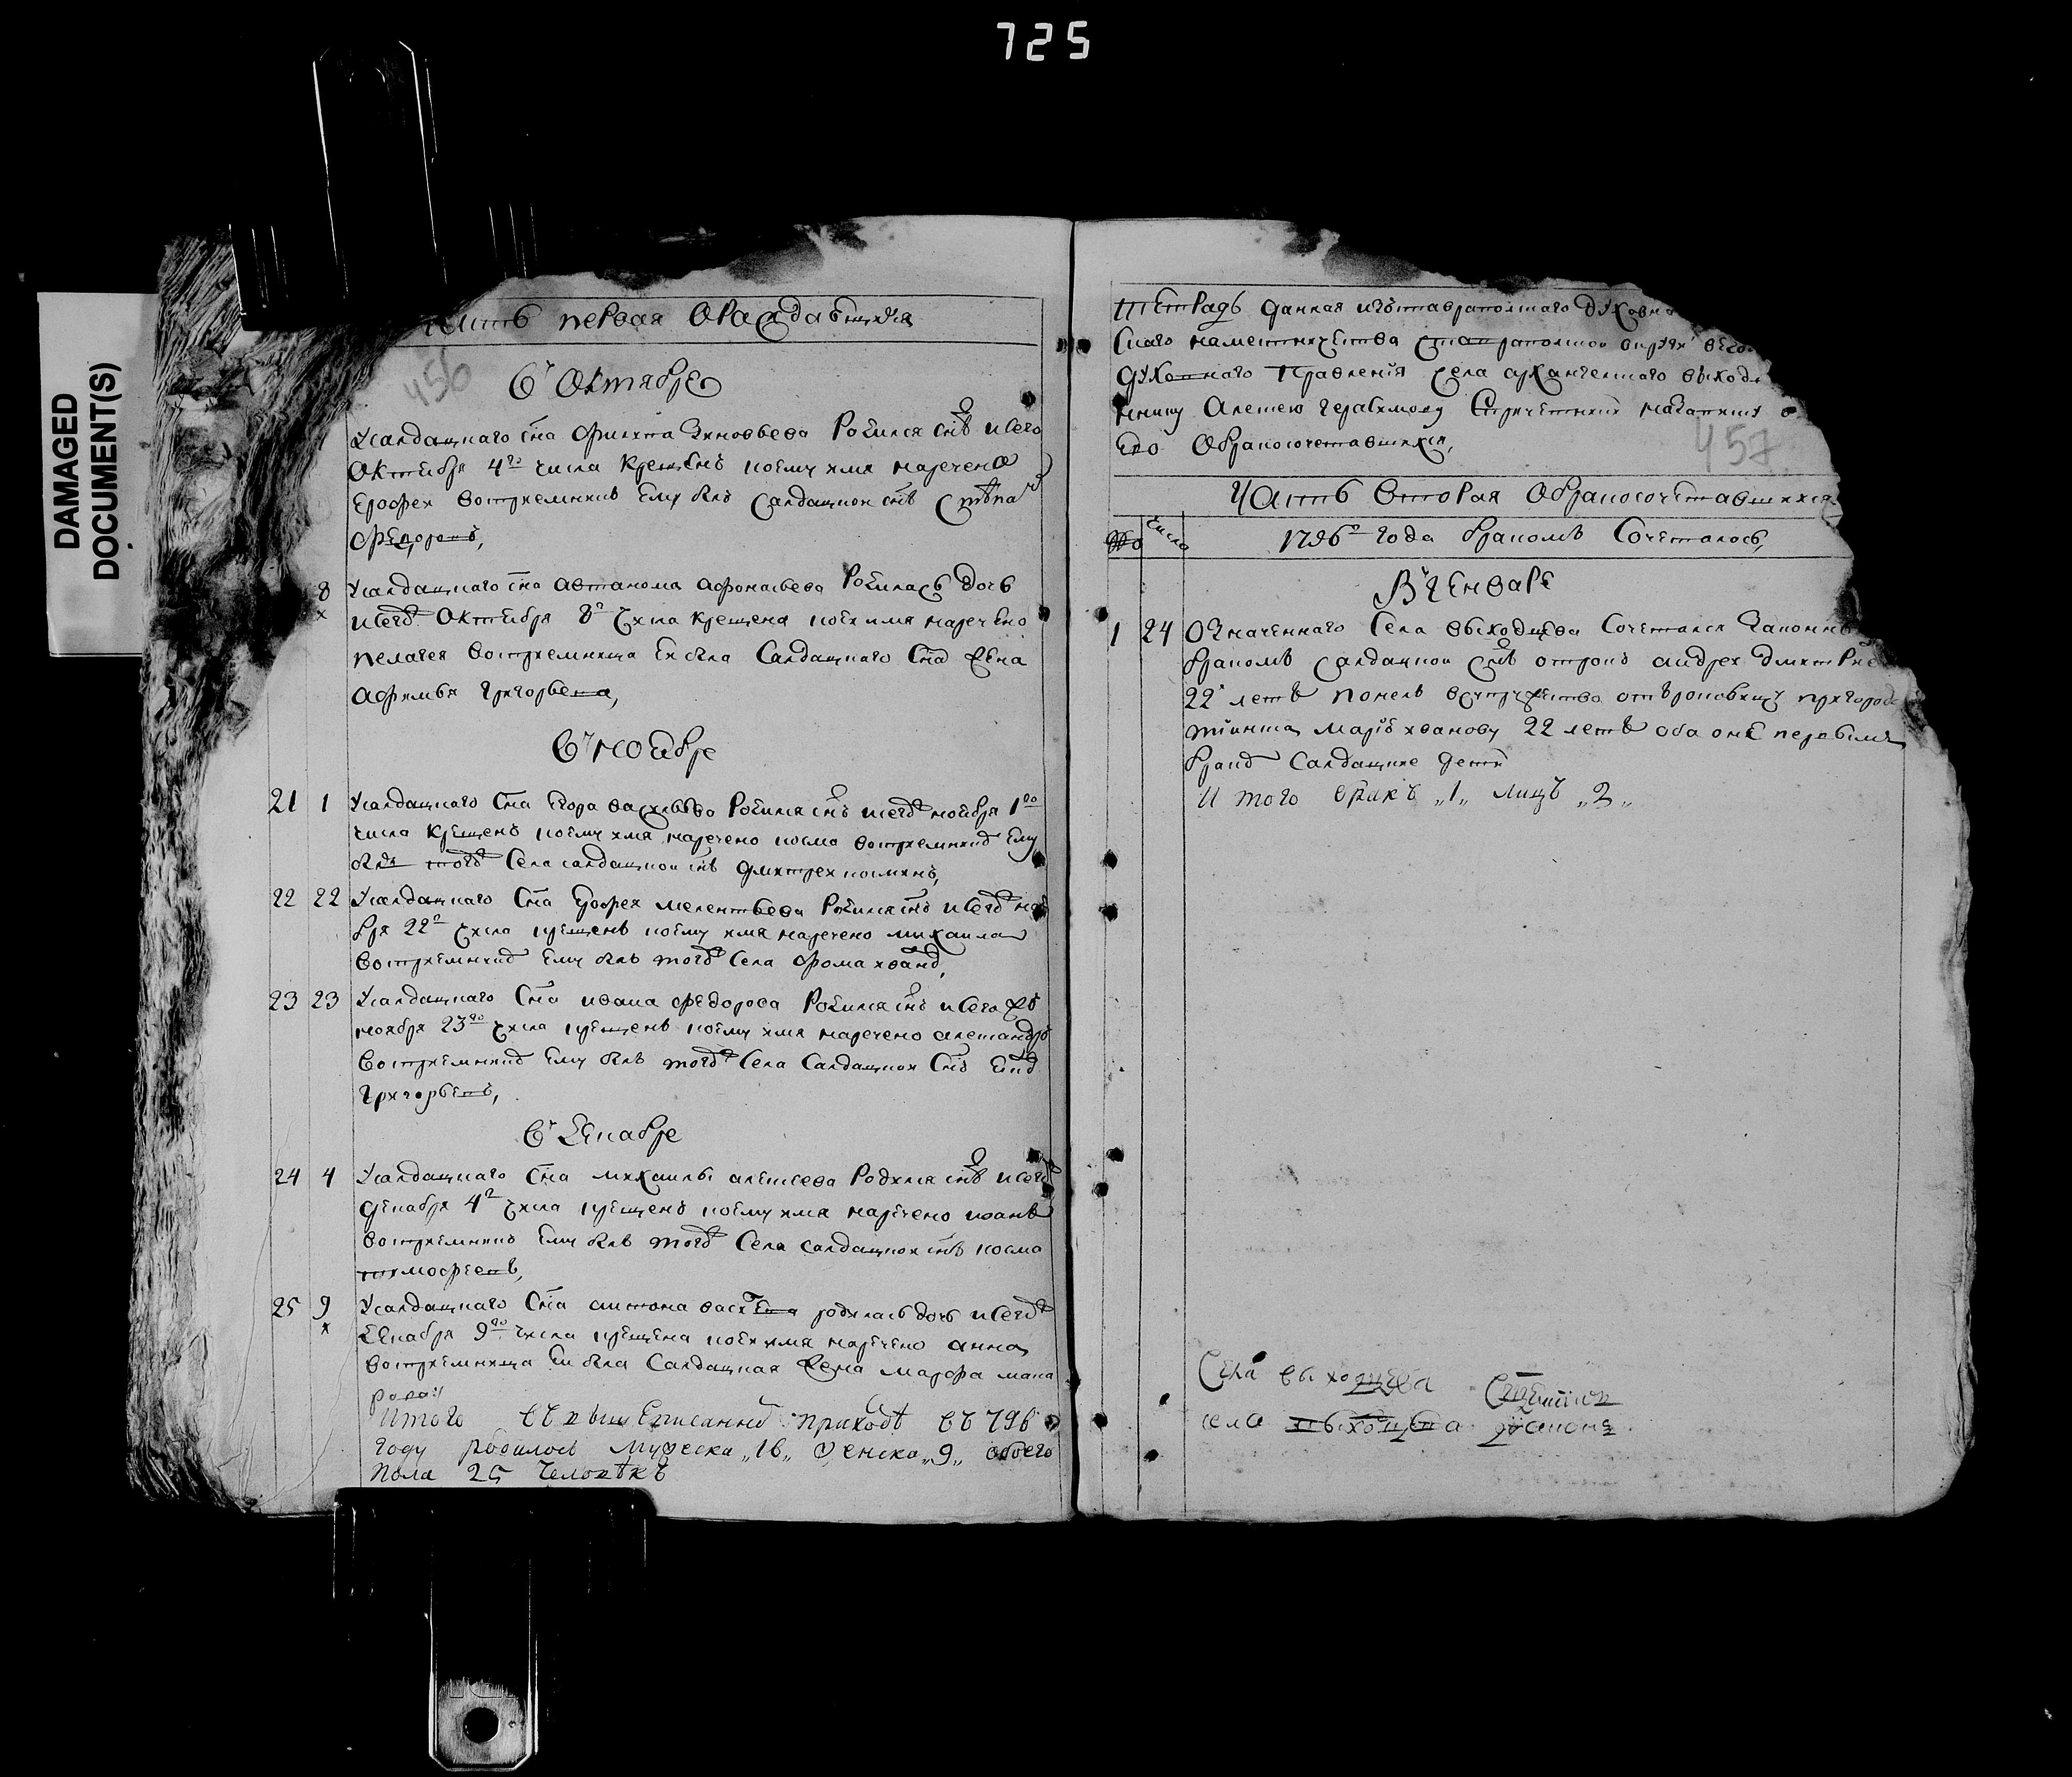 725
DAMAGED
DOCUMENT(S)
Часть первая Ораждающихся
456
В Октябре
Усалдацкаго сна Филипа Зиновьева Родился снъ и сего
Октебря 4го числа крещенъ и ему имя наречено
Ерофеи востриемникъ ему былъ салдацкои снъ
8
х
Усалдацкаго сна автанома афонасьева Родилась дочь
и сегож Октебря 8го числа крещена и оеи имя наречено
пелагея востриемница еи была Салдацкаго Сна жена
афимья григорьева,
В ноябре
21 1 Усалдацкаго Сна Егора васильева Родился снъ и сегож ноября 1го
числа крещенъ и ему имя наречено косма востриемникъ ему
былъ тогож Села салдацкои снъ дмитреи косминъ,
22 22 Усалдацкаго Сна Ерофея мелентьева Родился снъ и сегож ноя
бря 22го числа крещенъ и ему имя наречено михаила
востриемникъ ему былъ тогож Села фома ивановъ,
23 23 Усалдацкаго Сна ивана федорова Родился снъ и сего же
ноября 23го числа крещенъ и ему имя наречено александръ
востриемникъ ему былъ тогож Села Салдацкои Снъ
григорьевъ,
В Декабре
24 4 Усалдацкаго Сна михаилы алексеева Родился снъ и сего
декабря 4го числа крещенъ и ему имя наречено иванъ
востриемникъ ему былъ тогож Села салдацкои снъ косма
тимофеевъ,
25 9
х
Усалдацкаго Сна антона родилась дочь и сегож
декабря 9го числа крещена и оеи имя наречено анна
востриемница еи была Салдацкая жена марфа мака
рова:
Итого въ вышеписанномъ приходѣ въ 796
году родилось мужеска „16„ женска „9„ обоего
пола 25 человѣкъ
Тетрадь данная изъ ставрапольскаго духовна
скаго наместничества ставрапольской округи
духовнаго Правления села арханьгелскаго выход
ннику Алексею герасимову Спричетники на записку о
его Обракосочетавшихся,
457
Часть вторая Обракосочетавшихся
№ Числа 1796го года бракомъ Сочеталось,
В Генваре
1 24 Означеннаго Села выходцева Сочетался Законнымъ
бракомъ салдацкои снъ отрокъ андреи дмитрие
22 летъ понелъ всупружество пригорода
тиинска марью иванову 22 летъ оба оне первымъ
бракомъ салдацкие дети
И того бракъ „1„ лицъ „2„
Села выходцева Священник
села выходцева дьяконъ